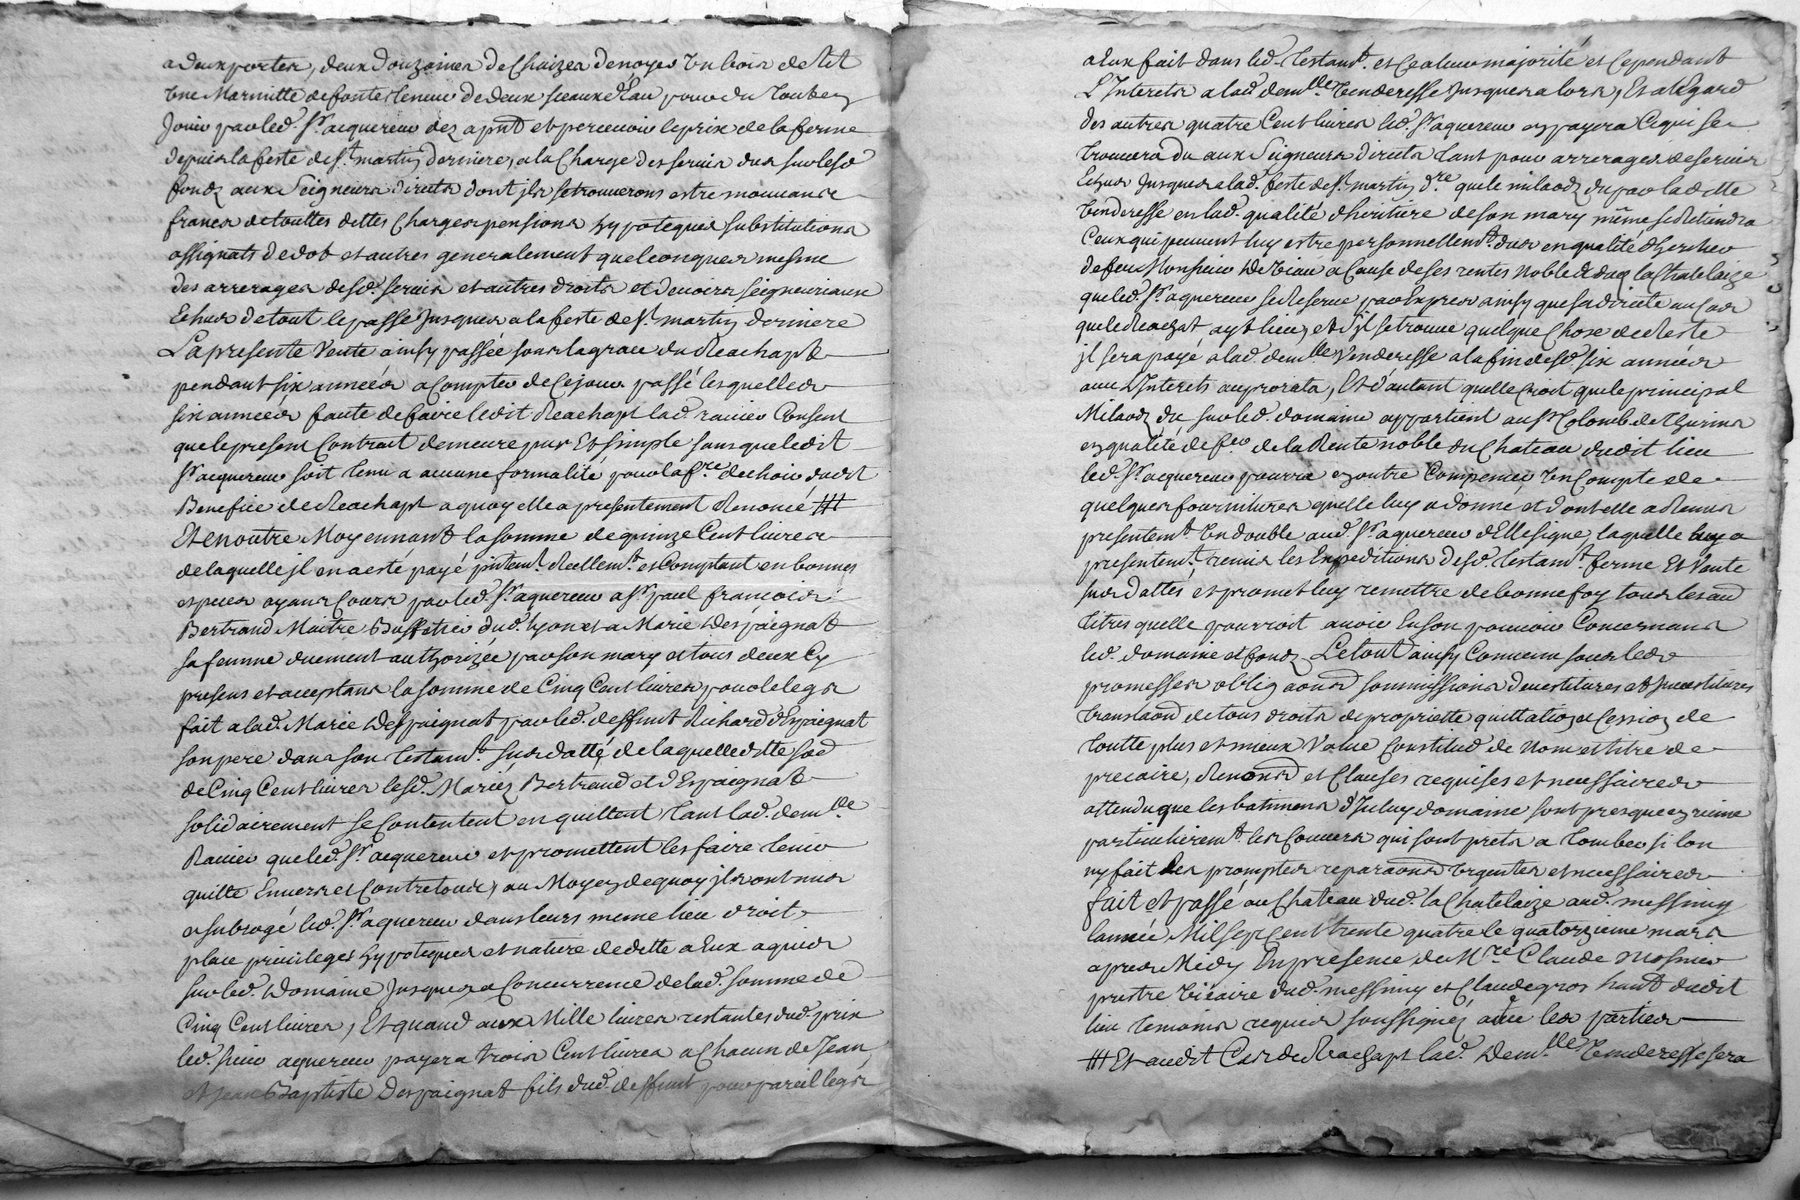 a deux portes, deux douzaines de Chaizes de noyer un bois de lit
une Marmitte de fonte teneur de deux sceaux d'Eau pour du tout en
Jouir par led. Sr. acquereur dez a pnt et percevoir le prix de la ferme
depuis la feste de St. martin derniere, a la Charge des servis dus sur lesd
fondz aux Seigneurs directs dont jls se trouverons estre mouvans
francs de touttes dettes Charges pensions hypoteques substitutions
assignats de dot et autres generalement quelconques mesme
des arrerages desd. servis et autres droits et devoirs seigneuriaux
Echus de tout le passé Jusques a la feste de St. martin derniere
La presente Vente ainsy passée sous la grace du Reachapt
pendant six années a Compter de Ce jour passé lesquelles
six années faute de faire ledit Reachapt lad. ravier Consent
que le present Contrait demeure pur Et simple sans que ledit
Sr. acquereur soit tenu a aucune formalité pour la fre. dechoir dudit
Benefice de Reachapt a quoy elle a presentement Renoncé ###
Et en outre Moyennant la somme de quinze Cent livres
de laquelle jl en a esté payé pntemt. Reellemt. et Comptant en bonnes
especes ayans Cours par led. Sr. acquereur a Sr. paul francois
Bertrand Maitre dud. Lyon et a Marie Despaignat
sa femme duement authorizée par son mary et tous deux Cy
presens et acceptans la somme de Cinq Cent livres pour le legs
fait a lad. Marie Despaignat par led. deffunt Richard d'Espaignat
son pere dans son testamt. susdatté, de laquelle ditte sod
de Cinq Cent livres lesd. Mariéz Bertrand et d'Espaignat
solidairement se Contentent en quittent tant lad. demlle.
Ravier que led. Sr. acquereur et promettent les faire tenir
quitte Envers et Contre tous, au Moyen de quoy jls ont mis
et subrogé led. Sr. acquereur dans leurs meme lieu droit
place privileges hypoteques et nature de dette a Eux aquis
sur led. Domaine Jusques a Concurrence de lad. somme de
Cinq Cent livres, Et quand aux Mille livres restantes dud. prix
led. sieur acquereur payera trois Cent livres a Chacun de Jean
et Jean Baptiste Despaignat fils dud. deffunt pour pareil legs
a Eux fait dans led. testamt. et Ce a leur majorité et Cependant
L'Interets a lad. demlle. Venderesse Jusques a lors, Et a l'Egard
des autres quatre Cent livres led. Sr. aquereur en payera Ce qui se
trouvera du aux Seigneurs directs tant pour arrerages de servis
Echus Jusques a lad. feste de St. martin dre. que le milaodz du par la ditte
Venderesse en lad. qualité d'heritiere de son mary même se Retiendra
Ceux qui peuvent luy estre personnellemt. dus en qualité d'heritier
de feu Monsieur De a Cause de ses rentes Noble la Chatelaize
que led. Sr. aquereur se Reserve par Exprés ainsy que sa directe au Cas
que le Reachat ayt lieu, et s'jl se trouve quelque Chose de Reste
jl sera payé a lad. demlle. Venderesse a la fin desd. six années
avec L'Interets au prorata, Et d'autant quelle Croit que le principal
Milaodz du sur led. domaine appartient au Sr. Colomb de Thurins
en qualité de de la Rente noble du Chateau dudit lieu
led. Sr. acquereur pourra en outre Compencer en Compte de
quelques fournitures quelle luy a donné et dont elle a Remis
presentemt. un double aud. Sr. aquereur d'Elle signé, laquelle luy a
presentemt. remis les Expeditions desd. testamt. ferme Et Vente
susdattés et promet luy remettre de bonne foy tous les aud
titres quelle pourroit avoir En son pouvoir Concernans
led. domaine et fondz Le tout ainsy Convenu sous les
promesses obligaons sommissions devestitures et Jnvestitures
translaon de tous droits de proprietté quittation et Cession de
toutte plus et mieux Value Constituon de nom et titre de
precaire, Renonon et Clauses requises et necessaires
attendu que les batimens d'Iceluy domaine sont presque en ruine
particulieremt. les Couvers qui sont prets a tomber si lon
ny fait les promptes reparaons urgentes et necessaires
fait Et passé au Chateau dud. la Chatelaize aud. messimy
lannée Mil sept Cent trente quatre le quatorzieme mars
apres Midy En presence de Mre. Claude Mosnier
prestre vicaire dud. messimy et Claude gros hant dudit
lieu temoins requis soussignez avec les parties
### Et audit Cas de Reachapt lad. Demlle. Venderesse sera